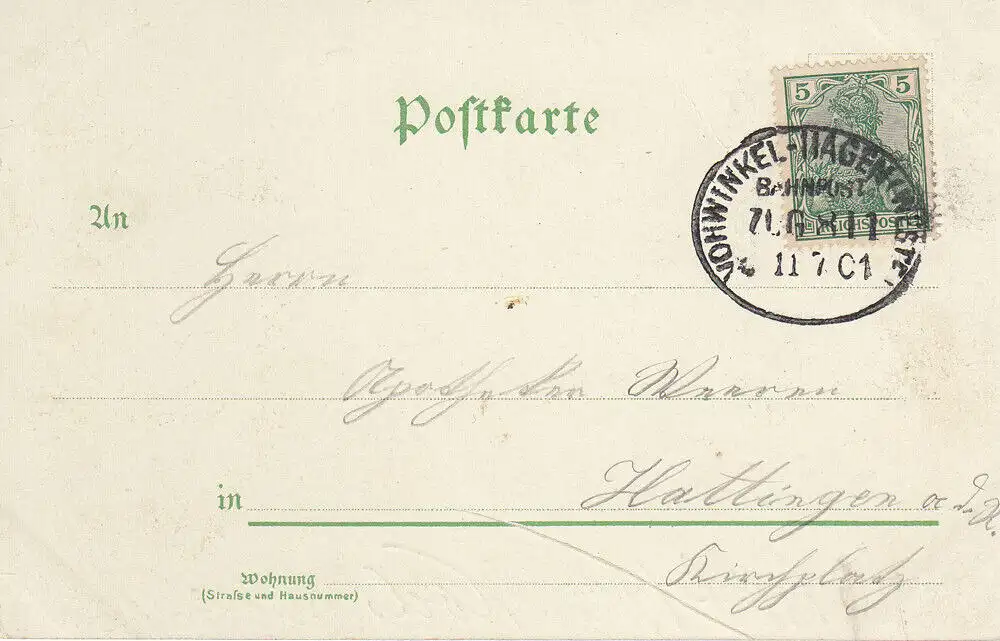 Postkarte
5 5
REICHSPOST
VOHWINKEL-HAGEN (WESTF.
BAHNPOST
ZUG 811
11 7 01
An
Herrn
Apotheker Weeren
in Hattingen a. d. R.
Wohnung Kirchplatz
(Strafse und Hausnummer)